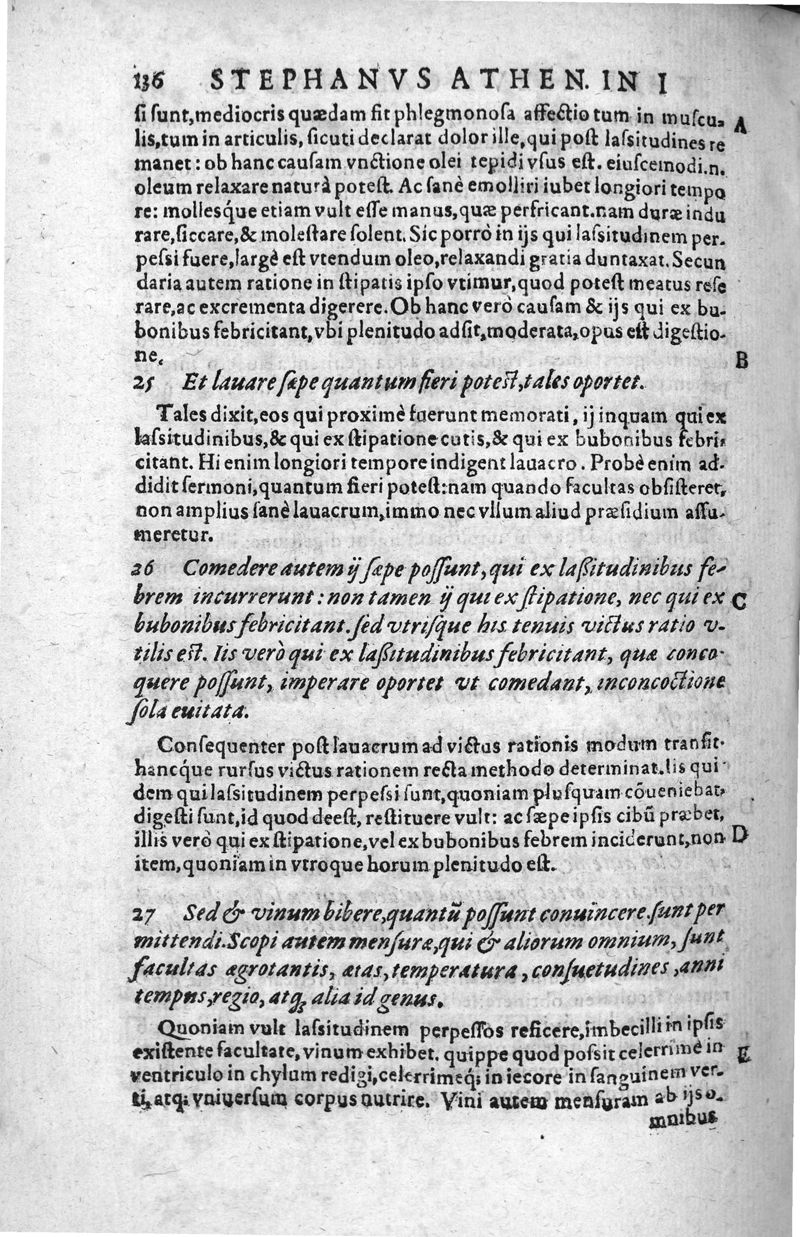 136 STEPHANVS ATHEN. IN I
ſi ſunt,mediocris quædam fit phlegmonoſa affectio tum in muſcu-
lis,tum in articulis, ſicuti declarat dolor ille,qui poſt laſsitudines re
manet: ob hanc cauſam vnctione olei tepidi vſus eſt. eiuſcemodi.n.
oleum relaxare naturâ poteſt. Ac ſanè emolliri iubet longiori tempo
re: molleſque etiam vult eſſe manus,quæ perfricant.nam duræ indu
rare,ſiccare,& moleſtare ſolent. Sic porrò in ijs qui laſsitudinem per-
peſsi fuere,largè eſt vtendum oleo,relaxandi gratia duntaxat. Secun
daria autem ratione in ſtipatis ipſo vtimur,quod poteſt meatus reſe
rare,ac excrementa digerere. Ob hanc verò cauſam & ijs qui ex bu-
bonibus febricitant,vbi plenitudo adſit,moderata,opus eſt digeſtio-
ne.
25 Et lauare ſæpe quantum fieri poteſt,tales oportet.
Tales dixit,eos qui proximè fuerunt memorati, ij inquam qui ex
laſsitudinibus,& qui ex ſtipatione cutis,& qui ex bubonibus febri-
citant. Hi enim longiori tempore indigent lauacro. Probè enim ad-
didit ſermoni,quantum fieri poteſt:nam quando facultas obſiſteret,
non amplius ſanè lauacrum,immo nec vllum aliud præſidium aſſu-
meretur.
26 Comedere autem ij ſæpe poſſunt, qui ex laſſitudinibus fe-
brem incurrerunt: non tamen ij qui ex ſtipatione, nec qui ex
bubonibus febricitant. ſed vtriſque his tenuis victus ratio v-
tilis eſt. Iis verò qui ex laſſitudinibus febricitant, quæ conco-
quere poſſunt, imperare oportet vt comedant, inconcoctione
ſola euitata.
Conſequenter poſt lauacrum ad victus rationis modum tranſit-
hancque rurſus victus rationem recta methodo determinat. Iis qui
dem qui laſsitudinem perpeſsi ſunt,quoniam pluſquam cõueniebat,
digeſti ſunt,id quod deeſt, reſtituere vult: ac ſæpe ipſis cibũ præbet,
illis verò qui ex ſtipatione,vel ex bubonibus febrem inciderunt,non
item,quoniam in vtroque horum plenitudo eſt.
27 Sed & vinum bibere,quantũ poſſunt conuincere.ſunt per
mittendi.Scopi autem menſuræ,qui & aliorum omnium, ſunt
facultas ægrotantis, ætas, temperatura, conſuetudines, anni
tempus,regio, atq; alia id genus.
Quoniam vult laſsitudinem perpeſſos reficere,imbecilli in ipſis
exiſtente facultate,vinum exhibet. quippe quod poſsit celerrimè in
ventriculo in chylum redigi,celerrimeq; in iecore in ſanguinem ver-
ti, atq; vniuerſum corpus nutrire. Vini autem menſuram ab ijs o-
mnibus
A
B
C
D
E